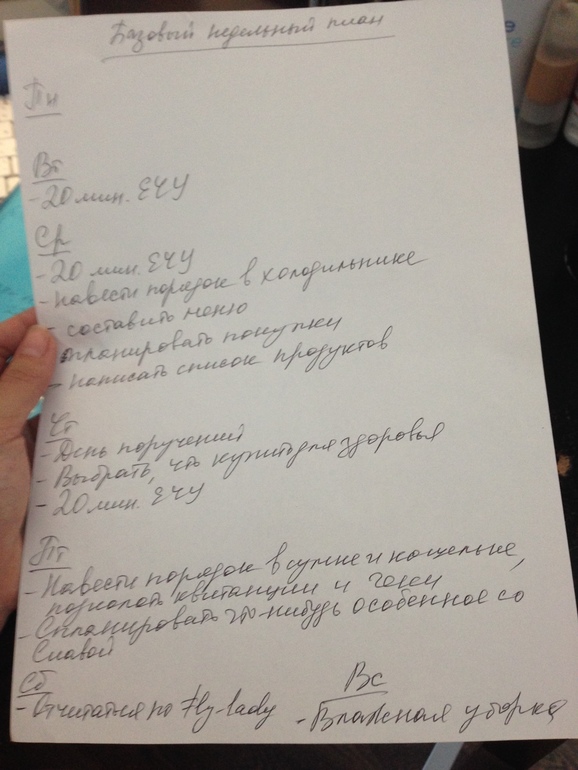 Базовый недельный план
Пн
Вт
- 20 мин. ЕЧУ
Ср
- 20 мин. ЕЧУ
- навести порядок в холодильнике
- составить меню
спланировать покупки
- написать список продуктов
Чт
- День поручений
- Выбрать, что купить для здоровья
- 20 мин. ЕЧУ
Пт
- Навести порядок в сумке и кошельке,
квитанции и чеки
- Спланировать что-нибудь особенное со
Славой
Сб
- Отчитаться по Fly-lady
Вс
- Влажная уборка